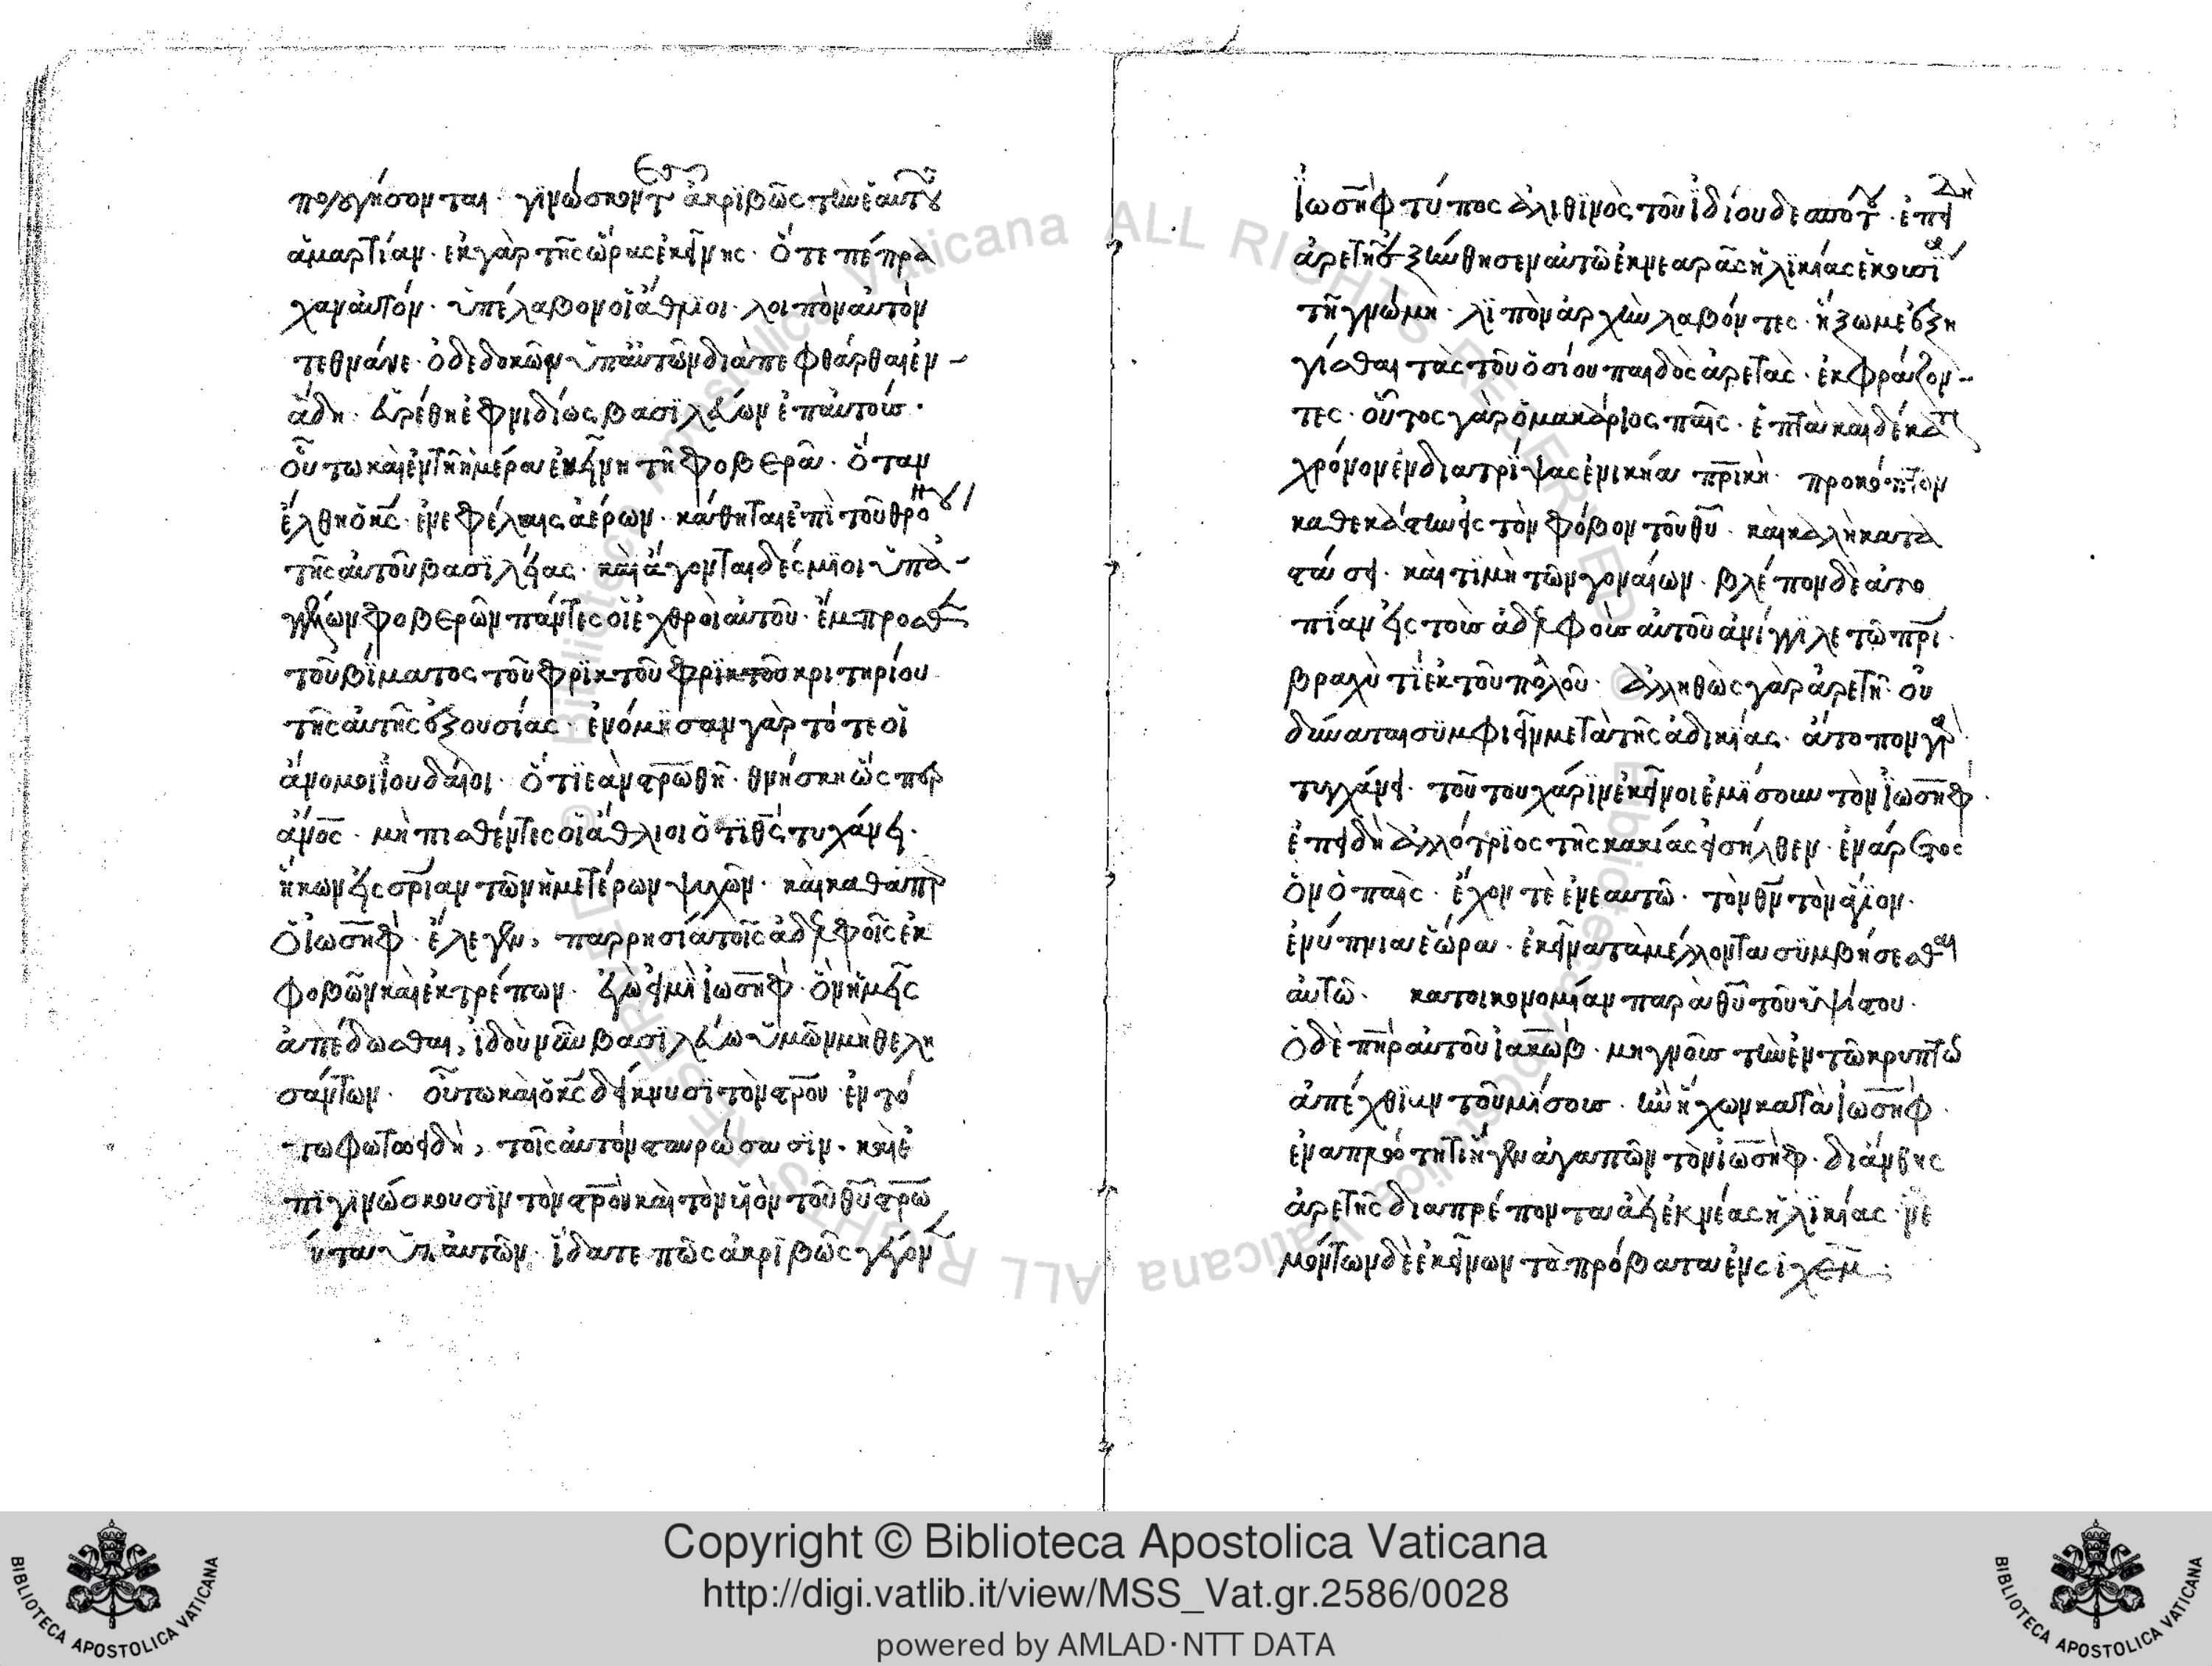 πολογήσονται· γϊνώσκοντες ἀκρϊβῶς τὴν ἑαυτοῦ
ἁμαρτίαν· ἐκ γὰρ τῆς ὥρας ἐκείνης· ὅτε πέπρα
χαν αὐτόν· ὑπέλαβον οἱ ἄθλιοι· λοιπὸν αὐτὸν
τεθνάνε· ὁ δεδοκῶν ὑπ' αὐτῶν διὰπεφθάρθαι ἐν -
ἄδη· εὑρέθη ἐφνιδίως βασϊλεύων ἐπ' αὐτοὺς·
οὕτω καὶ ἐν τῆ ἡμέρα ἐκείνη τῆ φοβερᾶ· ὅταν
ἔλθη ὁ κ̅ς̅· ἐνεφέλαις ἀέρων· κάθηται ἐπὶ τοῦ θρόνου
τῆς αὐτοῦ βασϊλείας· καὶ ἄγονται δέσμϊοι ὑπὸ ἀ-
γγέλων φοβερῶν πάντες οἱ ἐχθροὶ αὐτοῦ· ἔμπροσθεν
τοῦ βίματος τοῦ φρϊκτοῦ φρϊκτοῦ κριτηρίου
τῆς αὐτῆς ἐξουσίας· ἐνόμϊσαν γὰρ τότε οἱ
ἄνομοι ἰουδαῖοι· ὅτϊ ἐὰν σ̅ρ̅ωθῆ· θνήσκη ὥσπερ
ἀν̅ο̅ς̅· μὴ πισθέντες οἱ ἄθλιοι ὅτϊ θ̅ς̅ τυχάνει·
ἥκων εἰς σ̅ρ̅ιαν τῶν ἡμετέρων ψυχῶν· καὶ καθάπερ
ὁ ἰωσὴφ· ἔλεγεν, παρρησία τοῖς ἀδελφοῖς ἐκ
φοβῶν καὶ ἐκτρέπων· ἐγὼ εἰμὶ ἰωσὴφ· ὃν ἡμεῖς
ἀπέδωσθαι, ἰδοὺ νῦν βασϊλεύω ὑμῶν μὴ θελη
σάντων· οὕτω καὶ ὁ κ̅ς̅ δείκνυσϊ τὸν σ̅ρ̅ο̅ν· ἐν το
τω φωτοειδῆ, τοῖς αὐτὸν σταυρώσασϊν· καὶ ἐ
πϊγϊνώσκουσϊν τὸν σ̅ρ̅ὸν καὶ τὸν υἱὸν τοῦ θ̅υ̅ σ̅ρ̅ω̅
ντα ὑπ' αὐτῶν· ἴδατε πῶς ἀκρϊβῶς γέγον
ἰωσὴφ τύπος ἀλιθϊνὸς τοῦ ἰδίου δεσπότου· ἐπειδὴ
ἀρετῆ συνήθησεν αὐτῶ ἐκ νεαρᾶς ἡλϊκίας ἑκουσία
τῆ γνώμη· λϊπὸν ἀρχὴν λαβόντες· ἥξωμε ἐξη
γίσθαι τὰς τοῦ ὁσίου παιδὸς ἀρετὰς· ἐκφράζον-
τες· οὗτος γὰρ ὁ μακάριος παῖς· ἑπτὰ καὶ δέκατ
χρόνον ἐνδιατρίψας ἐν οικήα π̅ρ̅ικῆ· προκόπτων
καθεκάστην εἰς τὸν φόβον τοῦ θ̅υ̅· καὶ καλὴ κατὰ
στάσει· καὶ τϊμὴ τῶν γοναίων· βλέπον δὲ ἀτο
πίαν εἰς τοὺς ἀδελφοὺς αὐτοῦ ἀνίγγϊλε τῶ π̅ρ̅ι·
βραχὺ τὶ ἐκ τοῦ πολοῦ· ἀλληθῶς γὰρ ἀρετὴ· οὐ
δύναται σϋμφιεῖν μετὰ τῆς ἀδικίας· ἄτοπον γὰρ
τυγχάνει· τούτου χάρϊν ἐκεῖνοι ἐμϊσουν τὸν ἰωσὴφ·
ἐπειδὴ ἀλλότρϊος τῆς κακίας εἰσῆλθεν· ἐνάρετος
ὃν ὁ παῖς· ἔχον τὲ ἐν ἑαυτῶ· τὸν θ̅ν̅ τὸν ἅγϊον·
ἐνύπνια ἑώρα· ἐκεῖνα τὰ μέλλοντα σϋμβήσεσθαι
αὐτῶ· κατ οικονομίαν παρὰ θ̅υ̅ τοῦ ὑψίστου·
ὁ δὲ π̅η̅ρ αὐτοῦ ἰακὼβ· μὴ γνοὺς τὴν ἐν τῶ κρυπτῶ
ἀπέχθϊαν τοῦ μίσους· ἣν ἤχων κατὰ ἰωσὴφ·
ἐν απλότητι ἦγεν ἀγαπῶν τὸν ἰωσὴφ· διὰ
ἀρετῆς διαπρέποντα ἀεὶ ἐκ νέας ἡλϊκίας· νε
μόντων δὲ ἐκείνων τὰ πρόβατα ἐν σιχὲμ·
Copyright © Biblioteca Apostolica Vaticana
http://digi.vatlib.it/view/MSS_Vat.gr.2586/0028
powered by AMLAD·NTT DATA
BIBLIOTECA APOSTOLICA VATICANA
BIBLIOTECA APOSTOLICA VATICANA